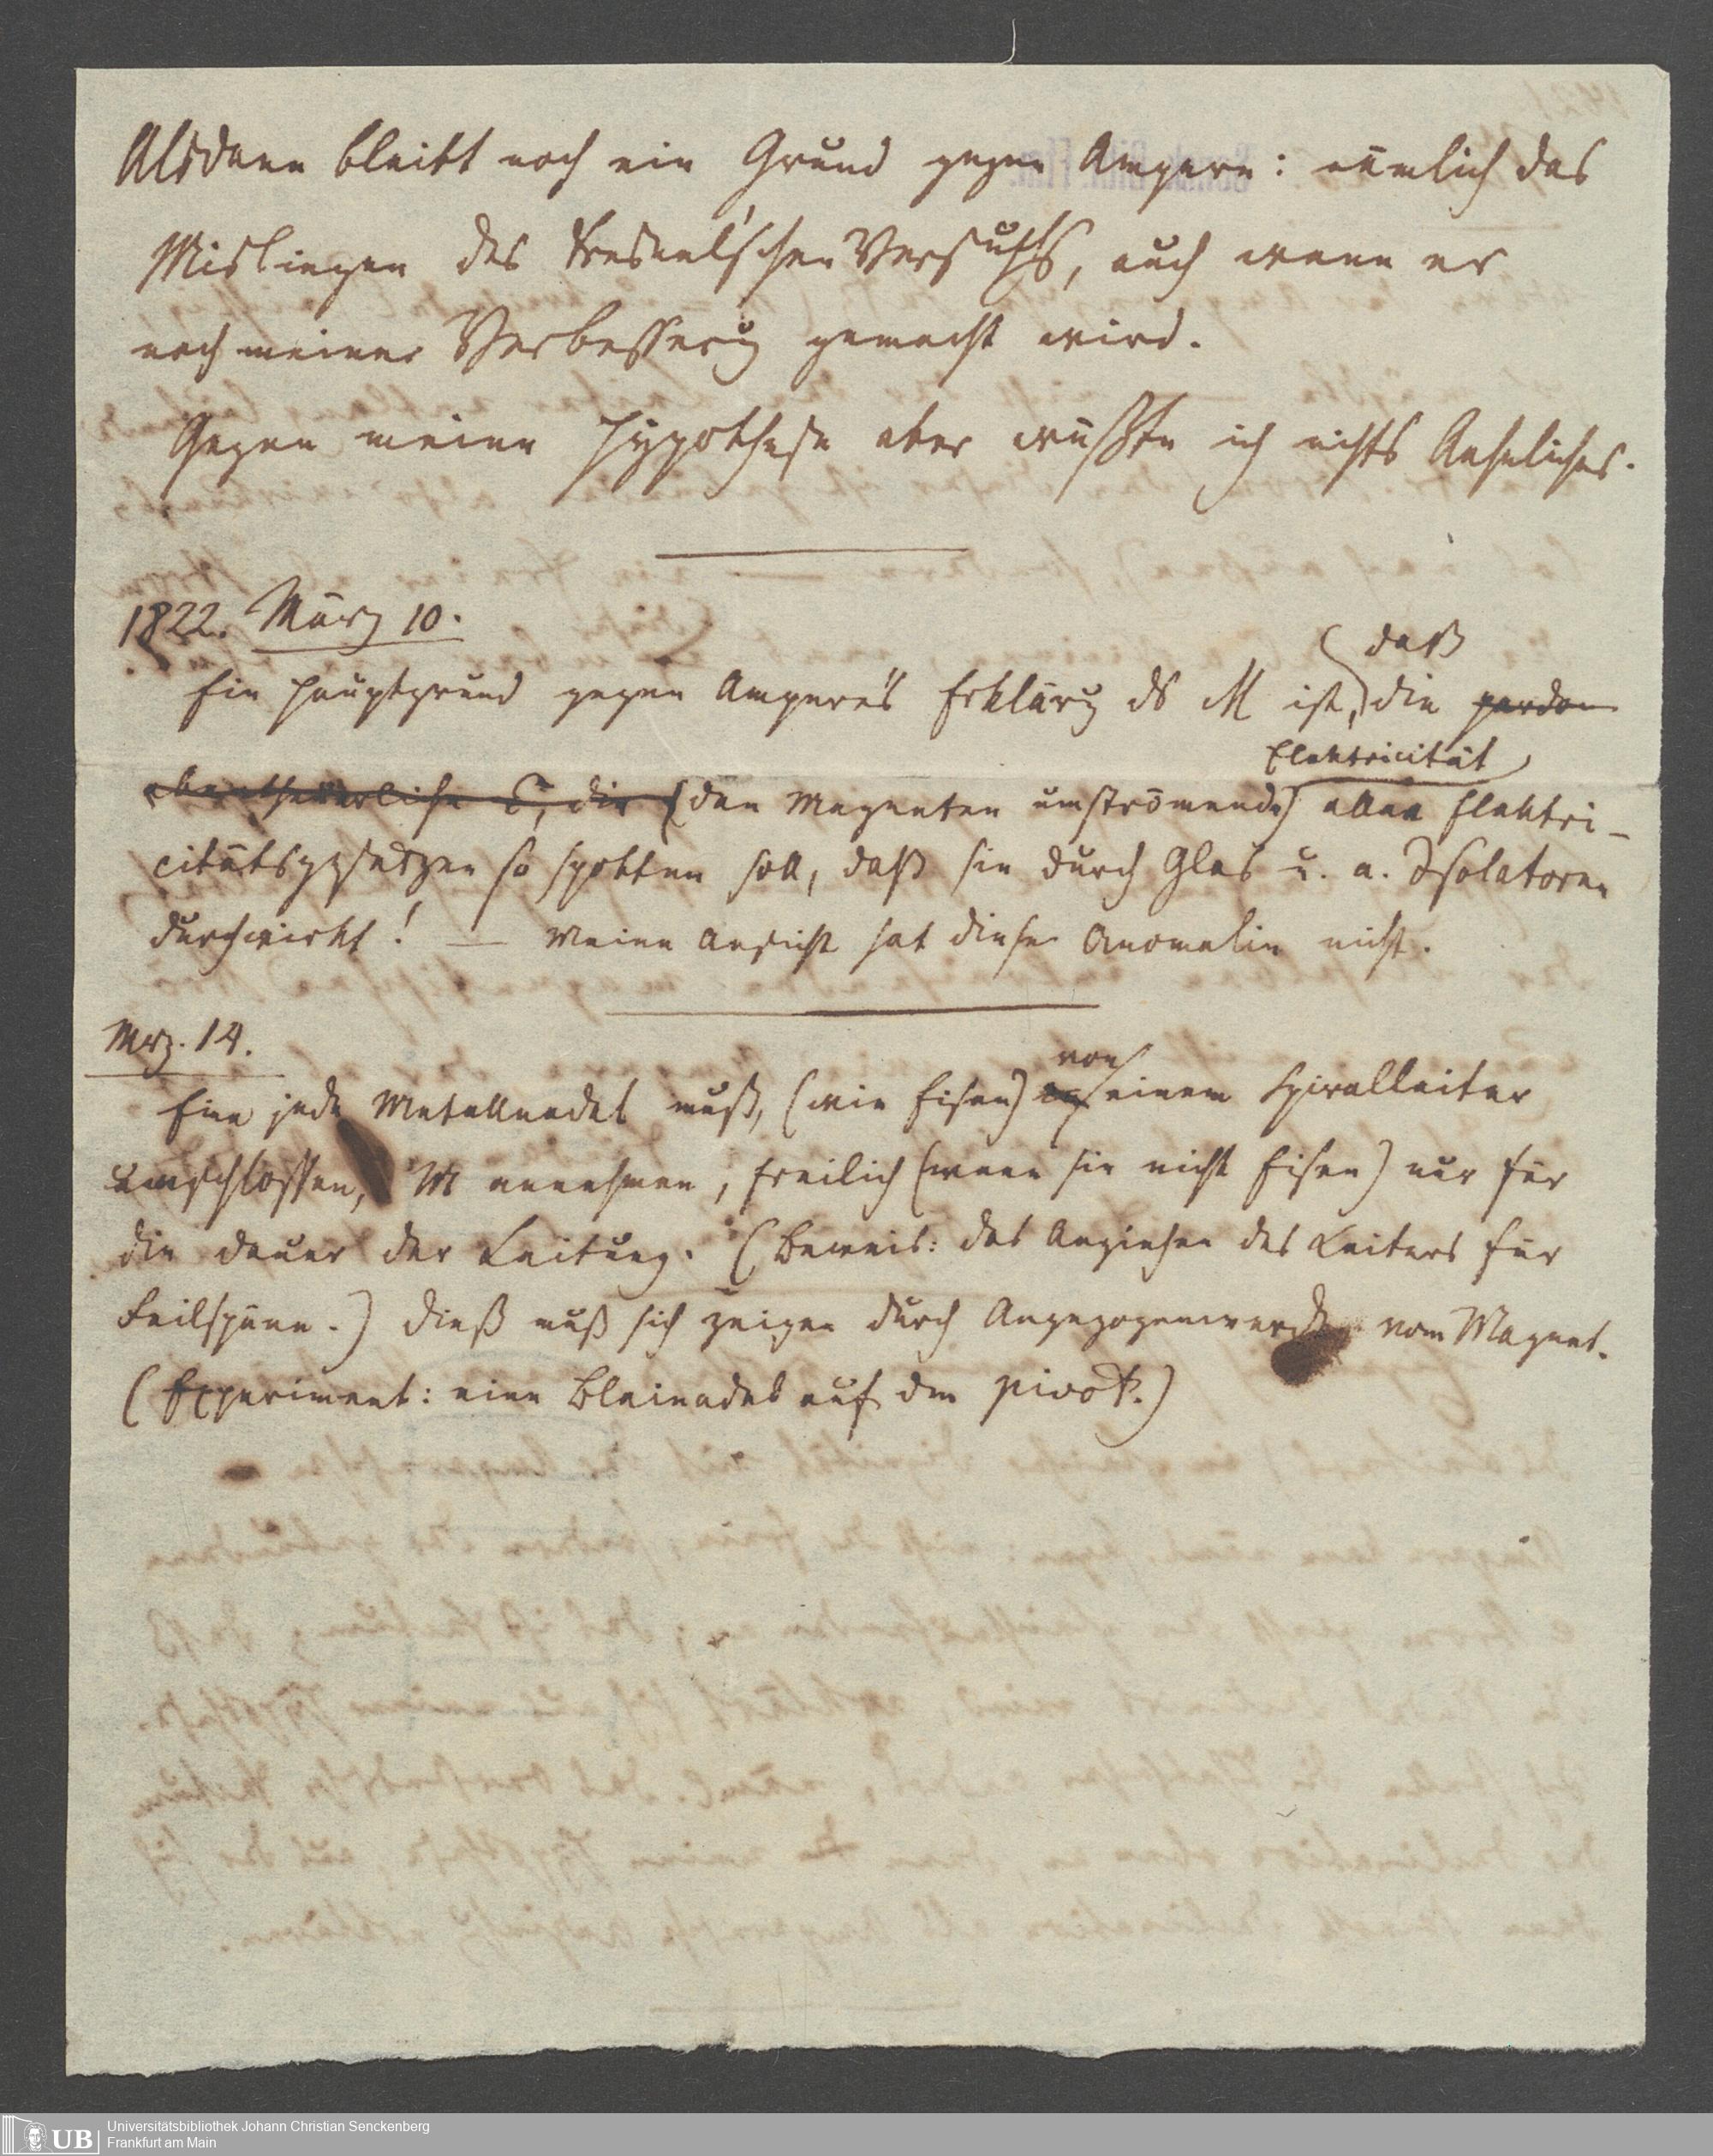 Alsdann bleibt noch ein Grund gegen Ampere: nämlich das
Mislingen des Fresnel'schen Versuchs, auch wenn er
nach meiner Verbesserg gemacht wird.
Gegen meine Hypothese aber wüßte ich nichts Aehnliches.
1822. März 10.
daß
Ein Hauptgrund gegen Ampere's Erklärg ds M ist, die
Elektricität
abentheuerliche E, die (den Magneten umströmende) allen Elektri-
citätsgesetzen so spotten soll, daß sie durch Glas u. a. Isolatoren
durchwirkt! — Meine Ansicht hat diese Anomalie nicht.
Mrz. 14.
von
Eine jede Metallnadel muß, (wie Eisen) einem Spiralleiter
umschlossen, M annehmen, freilich (wenn sie nicht Eisen) nur für
die Dauer der Leitung. (Beweis: das Anziehen des Leiters für
Feilspäne.) Dieß muß sich zeigen durch Angezogenwerden vom Magnet.
(Experiment: eine Bleinadel auf dem pivot.)
UB
Universitätsbibliothek Johann Christian Senckenberg
Frankfurt am Main